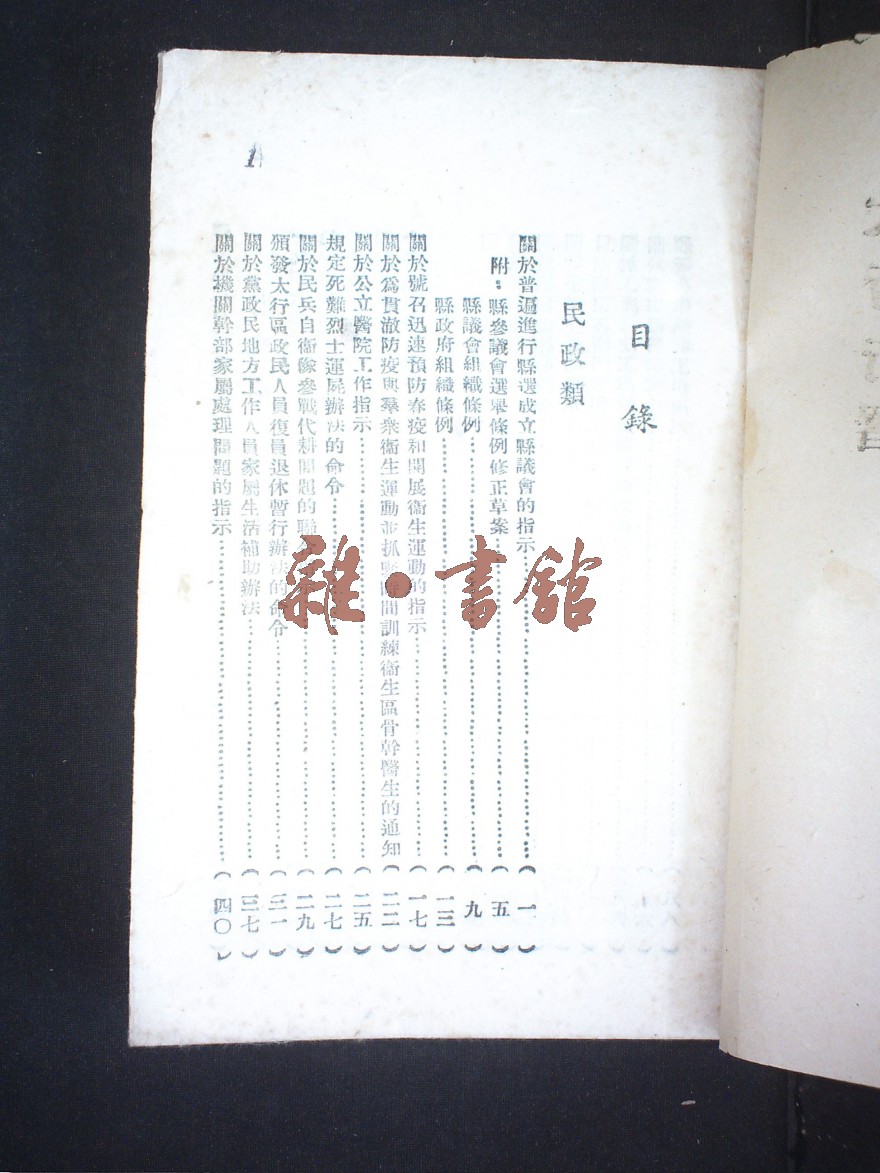 目錄
民政類
關於普遍進行縣選成立縣議會的指示……(一)
附：縣參議會選舉條例修正草案……(五)
縣議會組織條例……(九)
縣政府組織條例……(一三)
關於號召迅速預防春疫和開展衞生運動的指示……(一七)
關於爲貫澈防疫與羣衆衞生運動並抓緊時間訓練衞生區骨幹醫生的通知(二二)
關於公立醫院工作指示……(二五)
規定死難烈士運屍辦法的命令……(二七)
關於民兵自衞隊參戰代耕問題的聯合……(二九)
頒發太行區政民人員復員退休暫行辦法的命令……(三一)
關於黨政民地方工作人員家屬生活補助辦法……(三七)
關於機關幹部家屬處理問題的指示……(四〇)
1
雜·書館